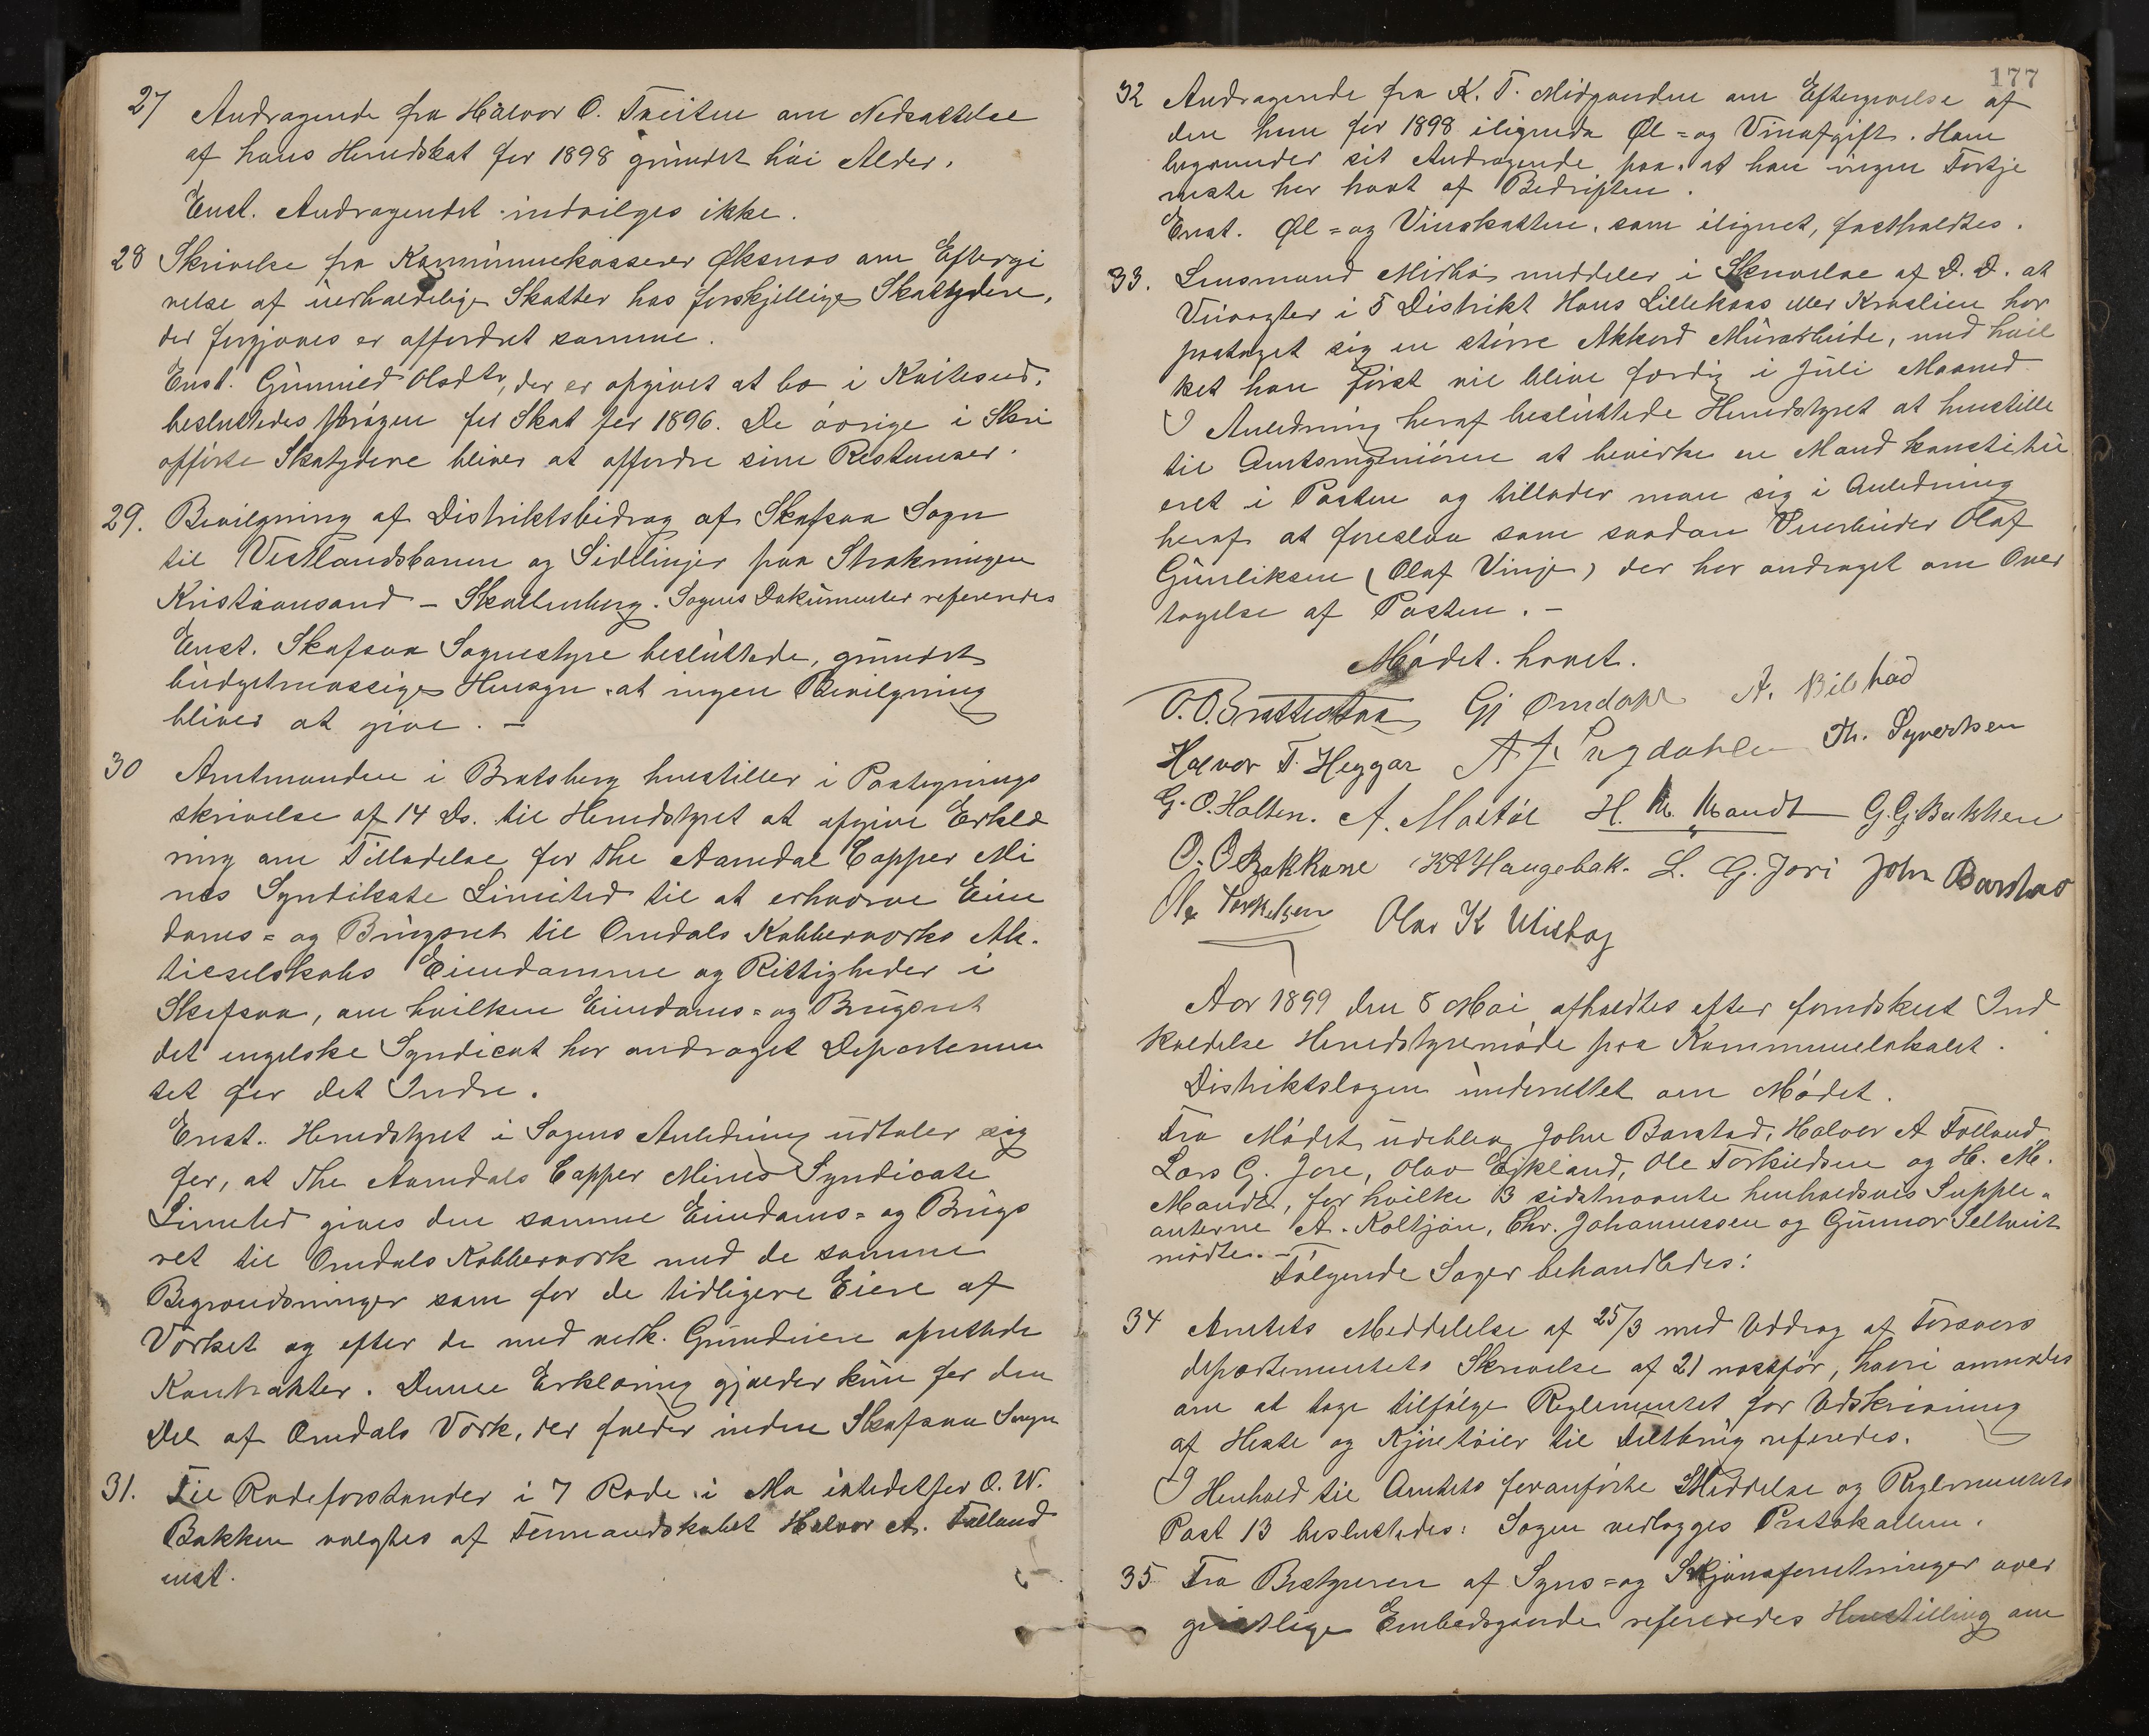 27 Andragende fra Halvor O. Tveiten om Nedsættelse
af hans Herredskat for 1898 grundet høi Alder.
Enst. Andragendet indvilges ikke.
28 Skrivelse fra Kommunekasserer Øksnes om Eftergi
velse af uerholdelige Skatter hos forskjellige Skatydere,
der forgjæves er affordret samme.
Enst. Gunnild Olsdtr, der er opgivet at bo i Kviteseid,
besluttedes for Skat for 1896. De øvrige i Skri
opførte Skatydere bliver at affordre sine Restanser.
29. Bevilgning af Distriktsbidrag af Skafsaa Sogn
til Vestlandsbanen og Sidelinjer paa Strækningen
Kristiansand – Skollenborg. Sagens Dokumenter refereredes
Enst. Skafsaa Sognestyre besluttede, grundet
budgetmæssige Hensyn at ingen Bevilgning
bliver at give. –
30 Amtmanden i Bratsberg henstiller i Paategnings
skrivelse af 14 Ds. til Herredstyret at afgive Erklæ
ring om Tilladelse for The Aamdal Copper Mi
nes Syndikate Limited til at erhverve Eien
doms= og Brugsret til Omdals Kobberværks Ak.
tieselskabs Eiendomme og Rettigheder i
Skafsaa, om hvilken Eiendoms= og Brugsret
det engelske Syndicat har andraget Departemen
tet for det Indre.
Enst. Herredstyret i Sagens Anledning udtaler sig
for, at The Aamdals Copper Mines Syndicate
Limited gives den samme Eiendoms= og Brugs
ret til Omdals Kobberværk med de samme
Begrændsninger som for de tidligere Eiere af
Værket og efter de med vedk. Grundeiere oprettede
Kontrakter. Denne Erklæring gjælder kun for den
Del af Omdals Værk, der falder inden Skafsaa Sogn
31. Til Rodeforstander i 7 Rode i Mo istedetfor O. W.
Bakken valgtes af Formandskabet Halvor A. Folland
enst.
177
32 Andragende fra K. T. Midgarden om Eftergivelse af
den ham for 1898 ilignede Øl= og Vinafgift. Han
begrunder sit Andragende paa, at han ingen Fortje
neste har havt af Bedriften.
Enst. Øl= og Vinskatten, som ilignet, fastholdtes.
33. Lensmand Midbø meddeler i Skrivelse af D. D. at
Veivogter i 5 Distrikt Hans Lillekaas eller Kroslien har
paataget sig en større Akkord Murarbeide, med hvil
ket han først vil blive færdig i Juli Maaned
I Anledning heraf besluttede Herredstyret at henstille
til Amtsingeniøren at bevirke en Mand konstitu
eret i Posten og tillader man sig i Anledning
heraf at foreslaa som saadan Veiarbeider Olaf
Gunliksen (Olaf Vinje) der har andraget om Over
tagelse af Posten. –
Mødet hævet.
O. O. Brattestaa Gj Omdahl A. Bilstad
Halvor T. Heggar A J. Lugdahlen Th. Syvertsen
G. O. Holten. A. Mostøl H. M. Mandt G. G. Bakken
O. O Bakkane KA Haugebak. L. G. Jori John Barstad
Ole Torkelsen Olav K Utistog
Aar 1899 den 8 Mai afholdtes efter forudskeet Ind
kaldelse Herredstyremøde paa Kommunelokalet.
Distriktslægen underrettet om Mødet.
Fra Mødet udeblev John Barstad, Halvor A Folland,
Lars G. Jore, Olav Eikland, Ole Torkildsen og H. M.
Mandt, for hvilke 3 sidstnævnte henholdsvis Supple=
anterne A. Koltjøn, Chr. Johannessen og Gunnar Seltveit
mødte. –
Følgende Sager behandledes:
34 Amtets Meddelelse af 25/3 med Uddrag af Forsvars
departementets Skrivelse af 21 næstfør, hvori anmodes
om at tage tilfølge Reglementet for Udskrivning
af Heste og Kjøretøier til Feltbrug refereredes.
I Henhold til Amtets foranførte Meddelse og Reglementets
Post 13 besluttedes: Sagen vedlægges Protokollen.
35 Fra Bestyreren af Syns= og Skjønsforretninger over
geistlige Embedsgaarde refereredes Henstilling om